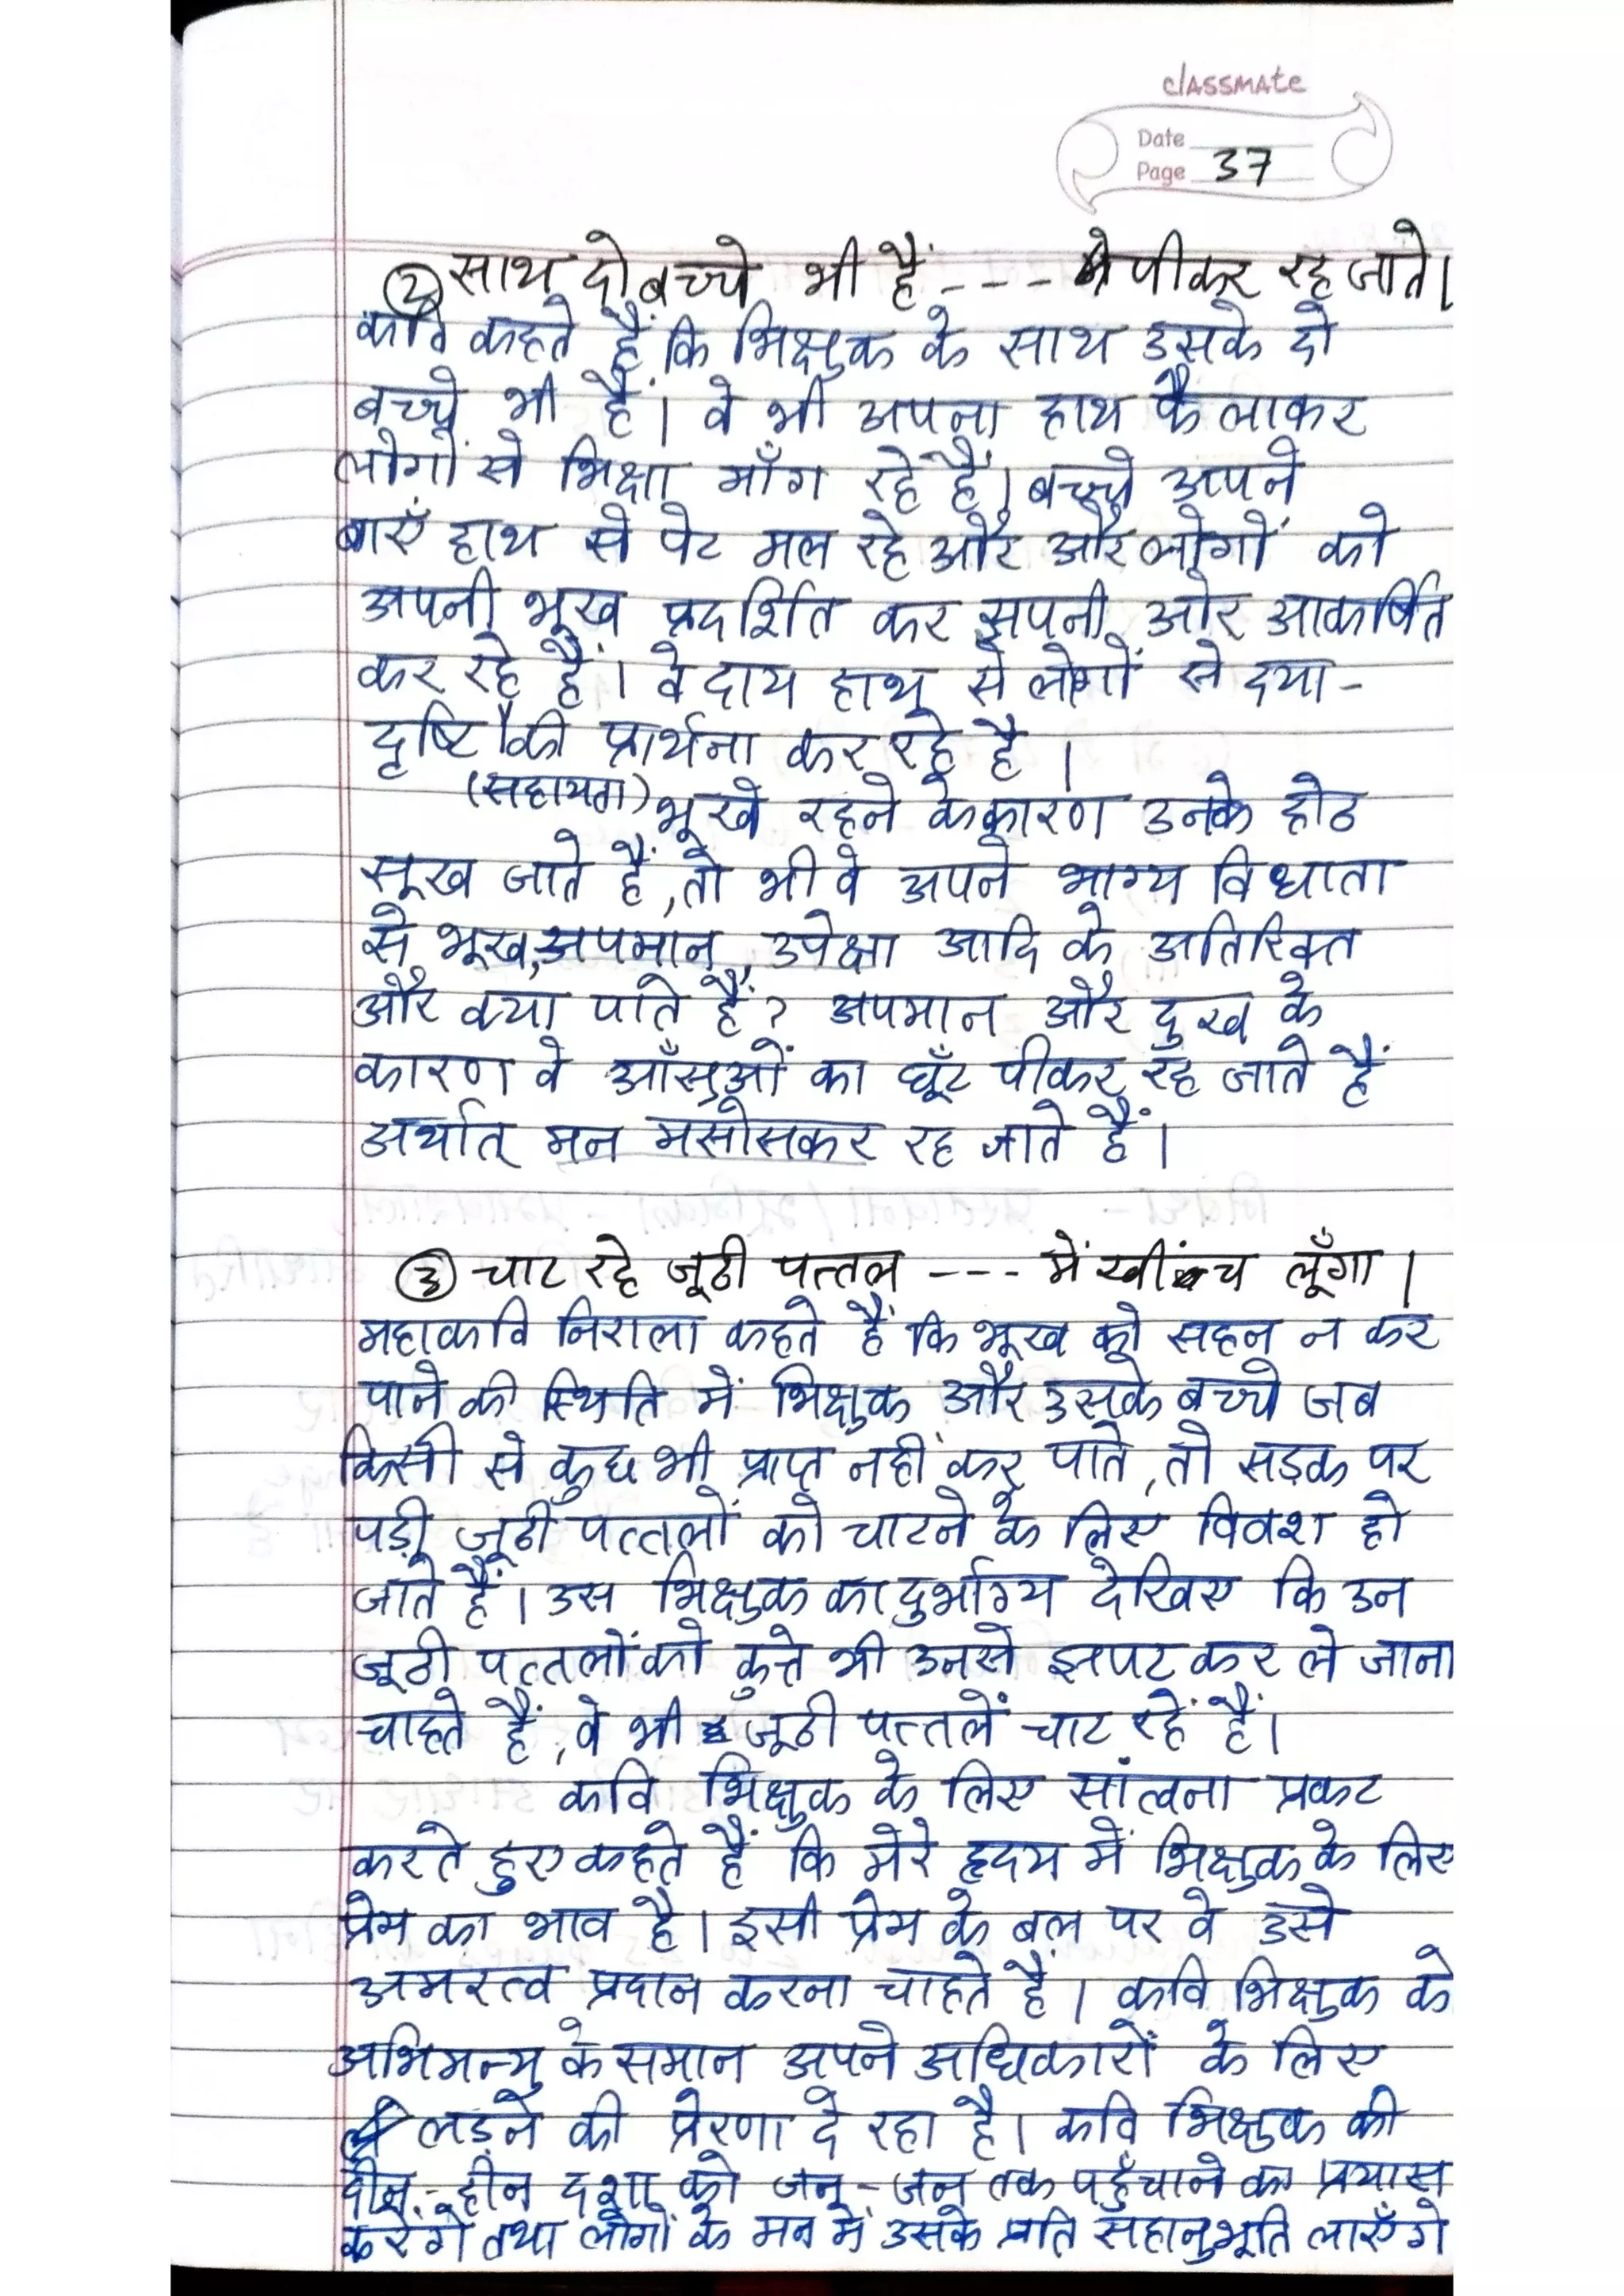 classmate
Date
Page 37
② साथ दो बच्चे भी हैं - - - - पीकर रह जाते।
कवि कहते हैं कि भिक्षुक के साथ उसके दो
बच्चे भी हैं। वे भी अपना हाथ फैलाकर
लोगों से भिक्षा माँग रहे हैं। बच्चे अपने
बाएँ हाथ से पेट मल रहे और और लोगों को
अपनी भूख प्रदर्शित कर अपनी ओर आकर्षित
कर रहे हैं। वे दाय हाथ से लोगों से दया-
दृष्टि की प्रार्थना कर रहे है।
(सहायता) भूखे रहने के कारण उनके होठ
सूख जाते हैं, तो भी वे अपने भाग्य विधाता
से भूख, अपमान, उपेक्षा आदि के अतिरिक्त
और क्या पाते हैं? अपमान और दुख के
कारण वे आँसुओं का घूँट पीकर रह जाते हैं
अर्थात् मन मसोसकर रह जाते हैं।
③ चाट रहे जूठी पत्तल - - - में खींच लूँगा।
महाकवि निराला कहते हैं कि भूख को सहन न कर
पाने की स्थिति में भिक्षुक और उसके बच्चे जब
किसी से कुछ भी प्राप्त नहीं कर पाते, तो सड़क पर
पड़ी जूठी पत्तलों को चाटने के लिए विवश हो
जाते हैं। उस भिक्षुक का दुर्भाग्य देखिए कि उन
जूठी पत्तलों को कुत्ते भी उनसे झपट कर ले जाना
चाहते हैं, वे भी जूठी पत्तलें चाट रहें हैं।
कवि भिक्षुक के लिए सांत्वना प्रकट
करते हुए कहते हैं कि मेरे हृदय में भिक्षुक के लिए
प्रेम का भाव है। इसी प्रेम के बल पर वे उसे
अमरत्व प्रदान करना चाहते हैं। कवि भिक्षुक को
अभिमन्यु के समान अपने अधिकारों के लिए
लड़ने की प्रेरणा दे रहा है। कवि भिक्षुक की
दीन-हीन दशा को जन-जन तक पहुँचाने का प्रयास
करेंगे तथा लोगों के मन में उसके प्रति सहानुभूति लाएँगे